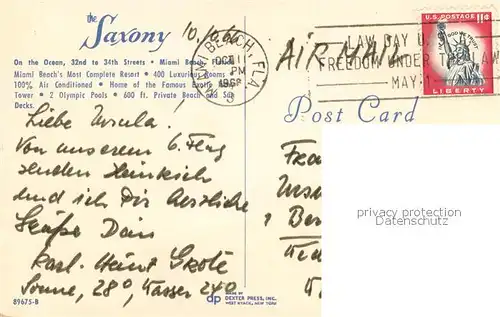 the
Saxony
On the Ocean, 32nd to 34th Streets • Miami Beach, Florida
Miami Beach's Most Complete Resort • 400 Luxurious Rooms
100% Air Conditioned • Home of the Famous Exotic
Tower • 2 Olympic Pools • 600 ft. Private Beach and Sun
Decks.
10.10.62
MIAMI BEACH, FLA.
OCT 11
PM
1962
3
AIR MAIL
LAW DAY U.S.
FREEDOM UNDER THE LAW
MAY 1
U.S. POSTAGE 11¢
IN GOD WE TRUST
LIBERTY
Post Card
Liebe Ursula.
Von unserem 6. Flug
senden Heinkich
und ich Dir herzliche
Grüße Dein
Karl-Heinz Grote
Sonne, 28°, Wasser 24°
Frau
Urs
1 Ber
privacy protection
Datenschutz
89675-B
dp
MADE BY
DEXTER PRESS, INC.
WEST NYACK, NEW YORK